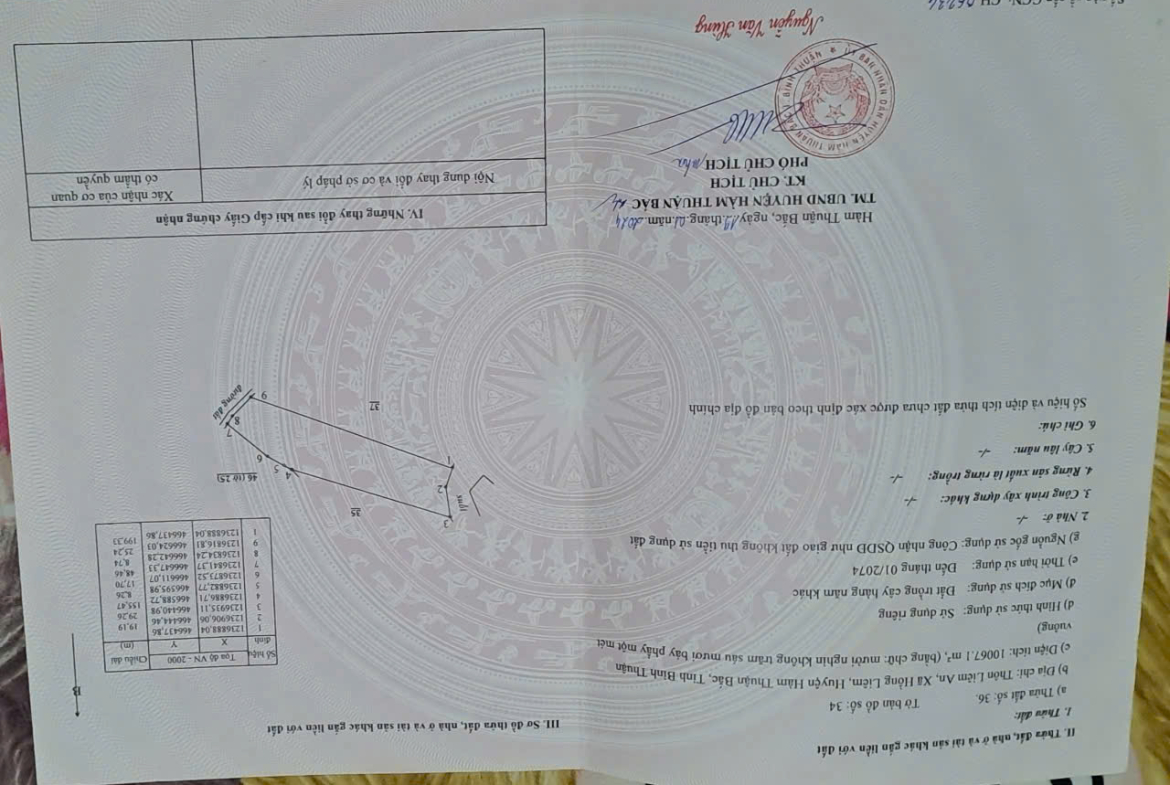 II. Thửa đất, nhà ở và tài sản khác gắn liền với đất
1. Thửa đất:
a) Thửa đất số: 36. Tờ bản đồ số: 34
b) Địa chỉ: Thôn Liêm An, Xã Hồng Liêm, Huyện Hàm Thuận Bắc, Tỉnh Bình Thuận
c) Diện tích: 10067.1 m², (bằng chữ: mười nghìn không trăm sáu mươi bảy phẩy một mét
vuông)
d) Hình thức sử dụng: Sử dụng riêng
đ) Mục đích sử dụng: Đất trồng cây hàng năm khác
e) Thời hạn sử dụng: Đến tháng 01/2074
g) Nguồn gốc sử dụng: Công nhận QSDĐ như giao đất không thu tiền sử dụng đất
2. Nhà ở: -/-
3. Công trình xây dựng khác: -/-
4. Rừng sản xuất là rừng trồng: -/-
5. Cây lâu năm: -/-
6. Ghi chú:
Số hiệu và diện tích thửa đất chưa được xác định theo bản đồ địa chính
Hàm Thuận Bắc, ngày 17 tháng 01 năm 2014
TM. UBND HUYỆN HÀM THUẬN BẮC
KT. CHỦ TỊCH
PHÓ CHỦ TỊCH
ỦY BAN NHÂN DÂN HUYỆN HÀM THUẬN BẮC BÌNH THUẬN
Nguyễn Văn Hùng
III. Sơ đồ thửa đất, nhà ở và tài sản khác gắn liền với đất
B
Số hiệu đỉnh Tọa độ VN - 2000 Chiều dài (m)
X Y
1 1236888,04 466437,86 19,19
2 1236906,06 466444,46 29,26
3 1236935,11 466440,98 155,47
4 1236886,71 466588,72 8,26
5 1236882,77 466595,98 17,70
6 1236873,52 466611,07 48,46
7 1236841,37 466647,33 8,74
8 1236834,24 466642,28 25,24
9 1236816,81 466624,03 199,33
1 1236888,04 466437,86
35
46 (tờ 25)
suối
3
2
1
4
5
6
7
8
9
37
đường đất
IV. Những thay đổi sau khi cấp Giấy chứng nhận
Nội dung thay đổi và cơ sở pháp lý
Xác nhận của cơ quan
có thẩm quyền